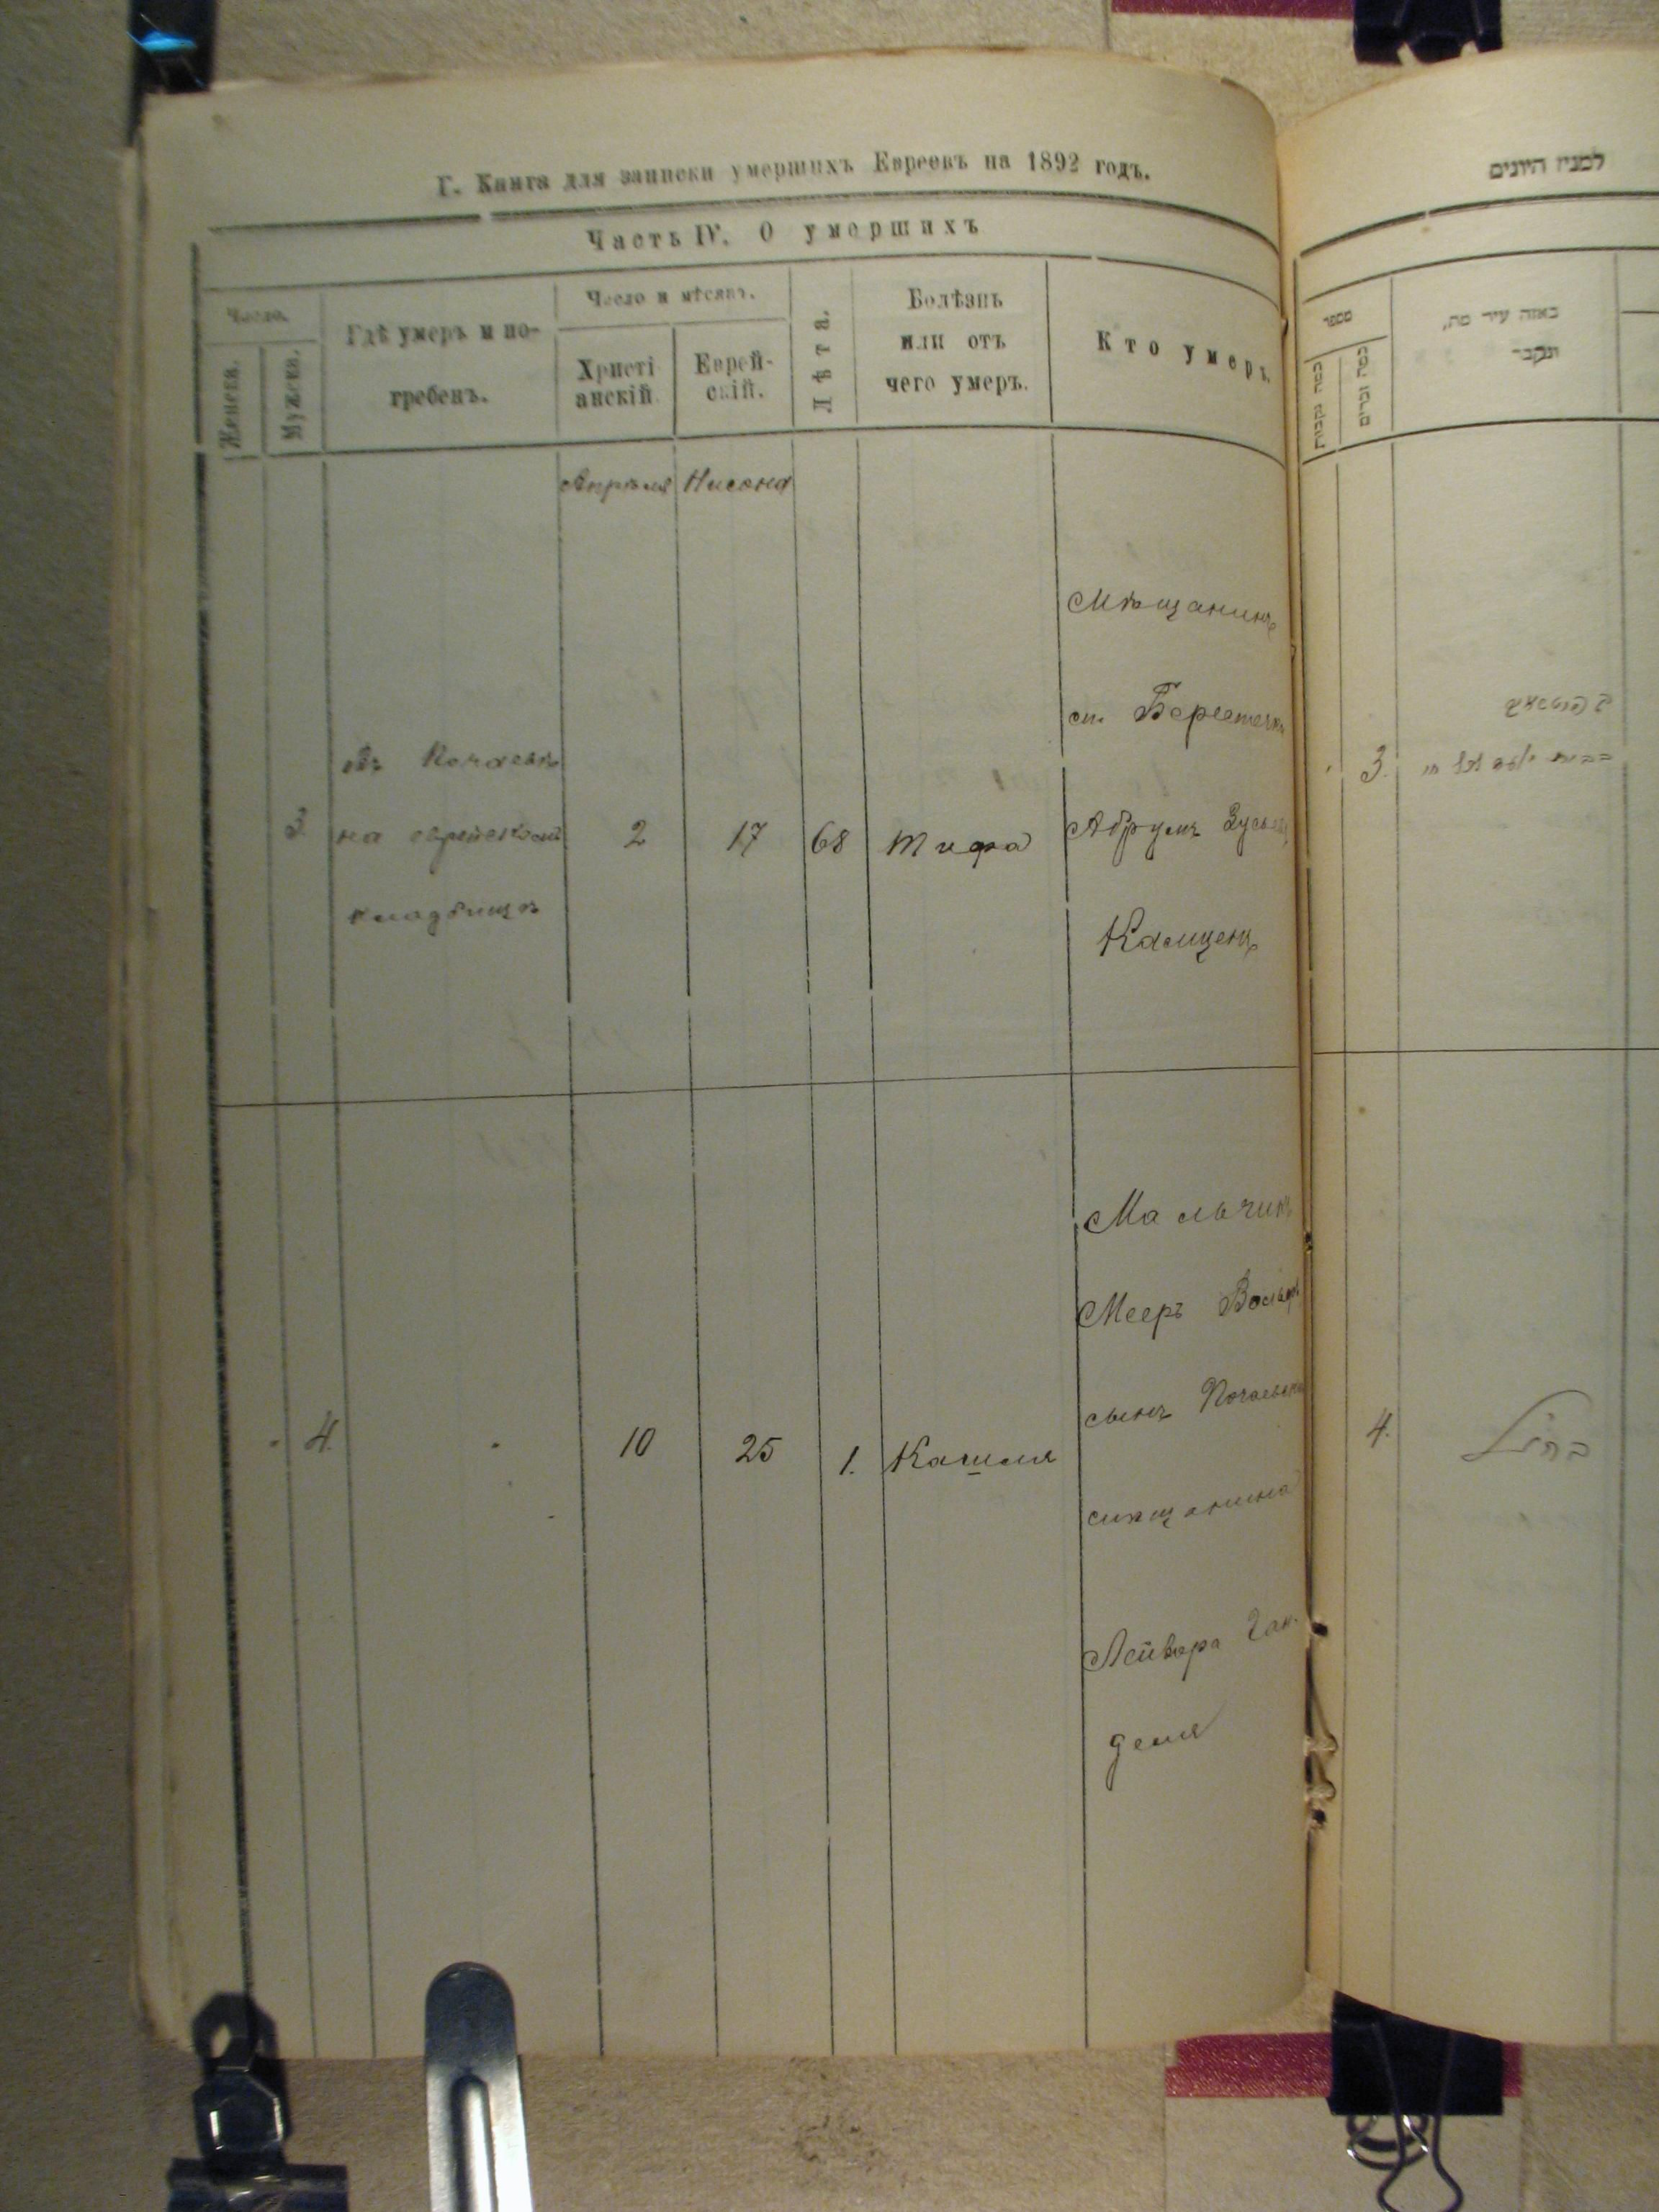 Г. Книга для записки умершихъ Евреевъ на 1892 годъ.
Часть IV. О умершихъ
Число.
Женска.
Мужска.
Гдѣ умеръ и по-
гребенъ.
Число и мѣсяцъ.
Христі
анскій
Еврей-
скій.
Лѣта.
Болѣзнь
или отъ
чего умеръ.
Кто умеръ.
Апрѣля Нисона
3
въ Почаевѣ
на еврейскомъ
кладбищѣ
2
17
68
Тифа
Мѣщанинъ
м. Берестечка
Абрумъ
Камценъ
4.
10
25
1.
Кашля
Мальчикъ
Мееръ
сынъ Почаевск
мѣщанина
Лейзера Ган-
деля
מספר
כמה נקבות
כמה זכרים
באזה עיר מת,
ונקבר
3.
4.